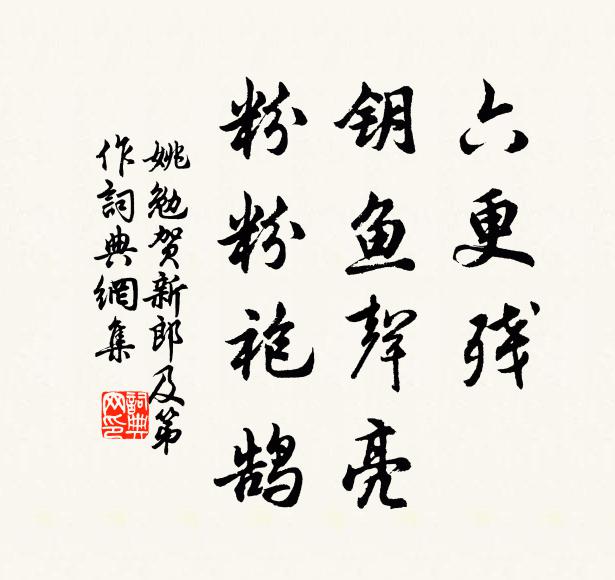 六更残
钥鱼聲亮
粉粉袍鹄
姚勉贺新郎及第
作詞典網集
詞典
网印